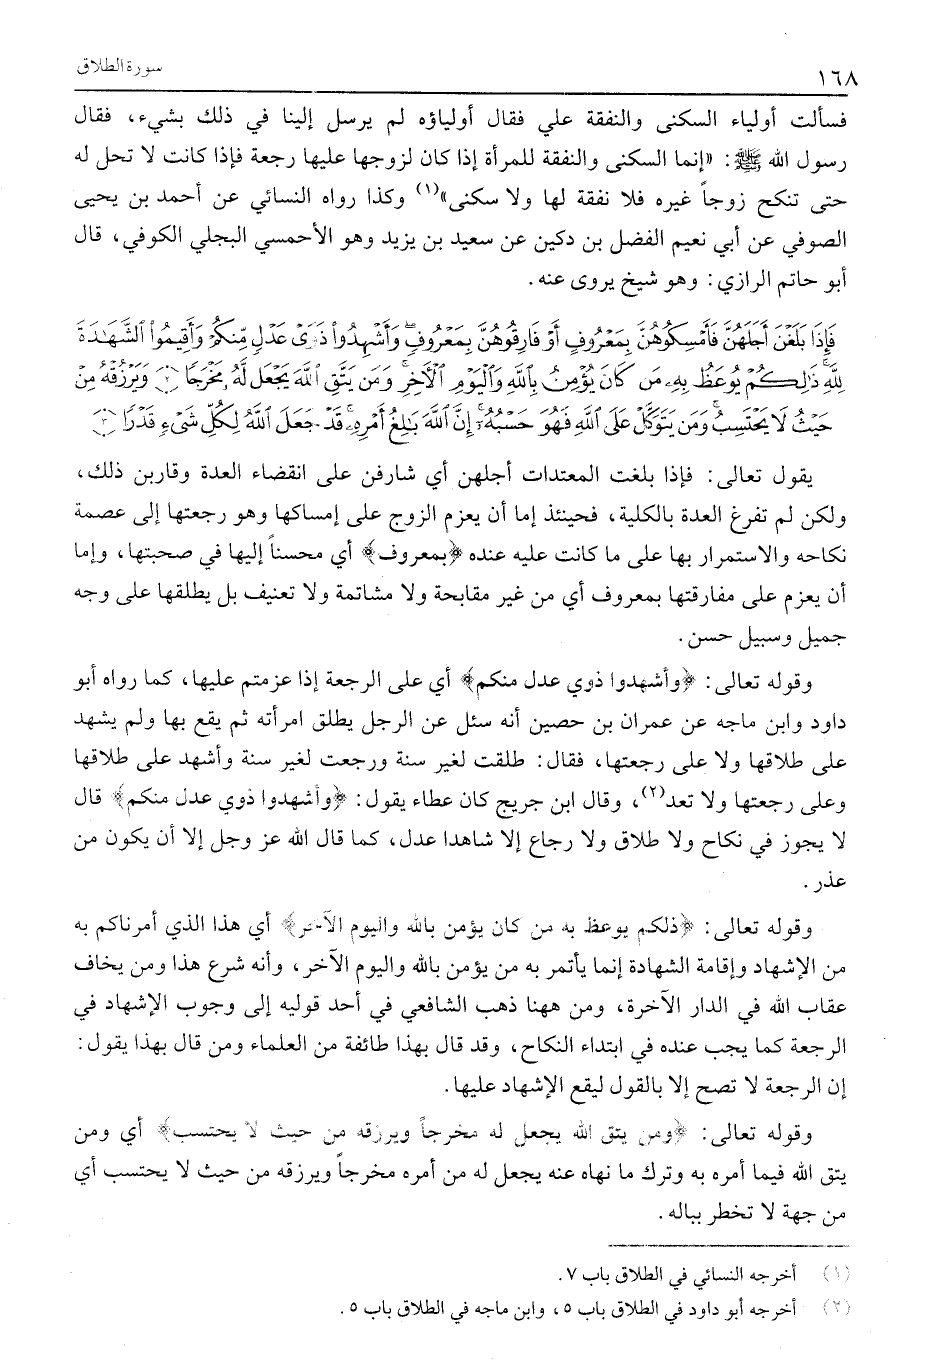 سورة الطلاق
١٦٨
فسألت أولياء السكنى والنفقة علي فقال أولياؤه لم يرسل إلينا في ذلك بشيء، فقال
رسول الله ﷺ: «إنما السكنى والنفقة للمرأة إذا كان لزوجها عليها رجعة فإذا كانت لا تحل له
حتى تنكح زوجاً غيره فلا نفقة لها ولا سكنى»(١) وكذا رواه النسائي عن أحمد بن يحيى
الصوفي عن أبي نعيم الفضل بن دكين عن سعيد بن يزيد وهو الأحمسي البجلي الكوفي، قال
أبو حاتم الرازي: وهو شيخ يروى عنه.
فَإِذَا بَلَغْنَ أَجَلَهُنَّ فَأَمْسِكُوهُنَّ بِمَعْرُوفٍ أَوْ فَارِقُوهُنَّ بِمَعْرُوفٍ وَأَشْهِدُوا۟ ذَوَىْ عَدْلٍ مِّنكُمْ وَأَقِيمُوا۟ ٱلشَّهَٰدَةَ
لِلَّهِ ذَٰلِكُمْ يُوعَظُ بِهِۦ مَن كَانَ يُؤْمِنُ بِٱللَّهِ وَٱلْيَوْمِ ٱلْأَخِرِ وَمَن يَتَّقِ ٱللَّهَ يَجْعَل لَّهُۥ مَخْرَجًا (٢) وَيَرْزُقْهُ مِنْ
حَيْثُ لَا يَحْتَسِبُ وَمَن يَتَوَكَّلْ عَلَى ٱللَّهِ فَهُوَ حَسْبُهُۥٓ إِنَّ ٱللَّهَ بَٰلِغُ أَمْرِهِۦ قَدْ جَعَلَ ٱللَّهُ لِكُلِّ شَىْءٍ قَدْرًا (٣)
يقول تعالى: فإذا بلغت المعتدات أجلهن أي شارفن على انقضاء العدة وقاربن ذلك،
ولكن لم تفرغ العدة بالكلية، فحينئذ إما أن يعزم الزوج على إمساكها وهو رجعتها إلى عصمة
نكاحه والاستمرار بها على ما كانت عليه عنده ﴿بمعروف﴾ أي محسناً إليها في صحبتها، وإما
أن يعزم على مفارقتها بمعروف أي من غير مقابحة ولا مشاتمة ولا تعنيف بل يطلقها على وجه
جميل وسبيل حسن.
وقوله تعالى: ﴿وأشهدوا ذوي عدل منكم﴾ أي على الرجعة إذا عزمتم عليها، كما رواه أبو
داود وابن ماجه عن عمران بن حصين أنه سئل عن الرجل يطلق امرأته ثم يقع بها ولم يشهد
على طلاقها ولا على رجعتها، فقال: طلقت لغير سنة ورجعت لغير سنة وأشهد على طلاقها
وعلى رجعتها ولا تعد(٢)، وقال ابن جريج كان عطاء يقول: ﴿وأشهدوا ذوي عدل منكم﴾ قال
لا يجوز في نكاح ولا طلاق ولا رجاع إلا شاهدا عدل، كما قال الله عز وجل إلا أن يكون من
عذر.
وقوله تعالى: ﴿ذلكم يوعظ به من كان يؤمن بالله واليوم الآخر﴾ أي هذا الذي أمرناكم به
من الإشهاد وإقامة الشهادة إنما يأتمر به من يؤمن بالله واليوم الآخر، وأنه شرع هذا ومن يخاف
عقاب الله في الدار الآخرة، ومن ههنا ذهب الشافعي في أحد قوليه إلى وجوب الإشهاد في
الرجعة كما يجب عنده في ابتداء النكاح، وقد قال بهذا طائفة من العلماء ومن قال بهذا يقول:
إن الرجعة لا تصح إلا بالقول ليقع الإشهاد عليها.
وقوله تعالى: ﴿ومن يتق الله يجعل له مخرجاً ويرزقه من حيث لا يحتسب﴾ أي ومن
يتق الله فيما أمره به وترك ما نهاه عنه يجعل له من أمره مخرجاً ويرزقه من حيث لا يحتسب أي
من جهة لا تخطر بباله.
(١) أخرجه النسائي في الطلاق باب ٧.
(٢) أخرجه أبو داود في الطلاق باب ٥، وابن ماجه في الطلاق باب ٥.